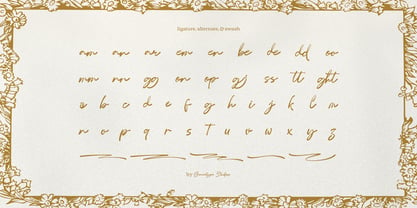 ligature, alternate, & swash
am an as em en be de dd oo
mm nn gg on op gy ss tt ght
a b c d e f g h i j k l m
n o p q r s t u v w x y z
by Genotype Studio